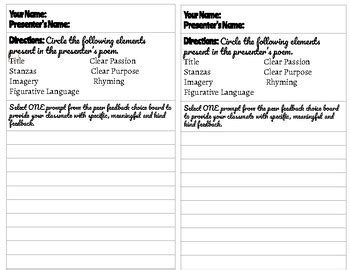 Your Name:
Presenter's Name:
Directions: Circle the following elements
present in the presenter's poem.
Title Clear Passion
Stanzas Clear Purpose
Imagery Rhyming
Figurative Language
Select ONE prompt from the peer feedback choice board
to provide your classmate with specific, meaningful and kind
feedback.
Your Name:
Presenter's Name:
Directions: Circle the following elements
present in the presenter's poem.
Title Clear Passion
Stanzas Clear Purpose
Imagery Rhyming
Figurative Language
Select ONE prompt from the peer feedback choice board
to provide your classmate with specific, meaningful and kind
feedback.